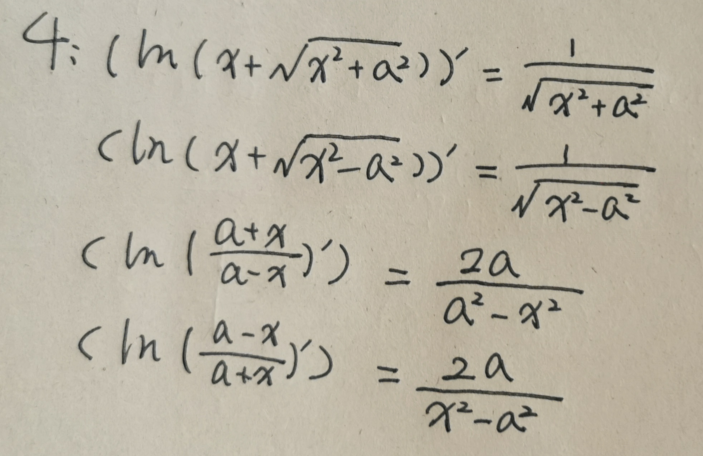 4: (ln(x+√(x²+a²)))′ = 1/√(x²+a²)
(ln(x+√(x²-a²)))′ = 1/√(x²-a²)
(ln((a+x)/(a-x))′) = 2a/(a²-x²)
(ln((a-x)/(a+x))′) = 2a/(x²-a²)